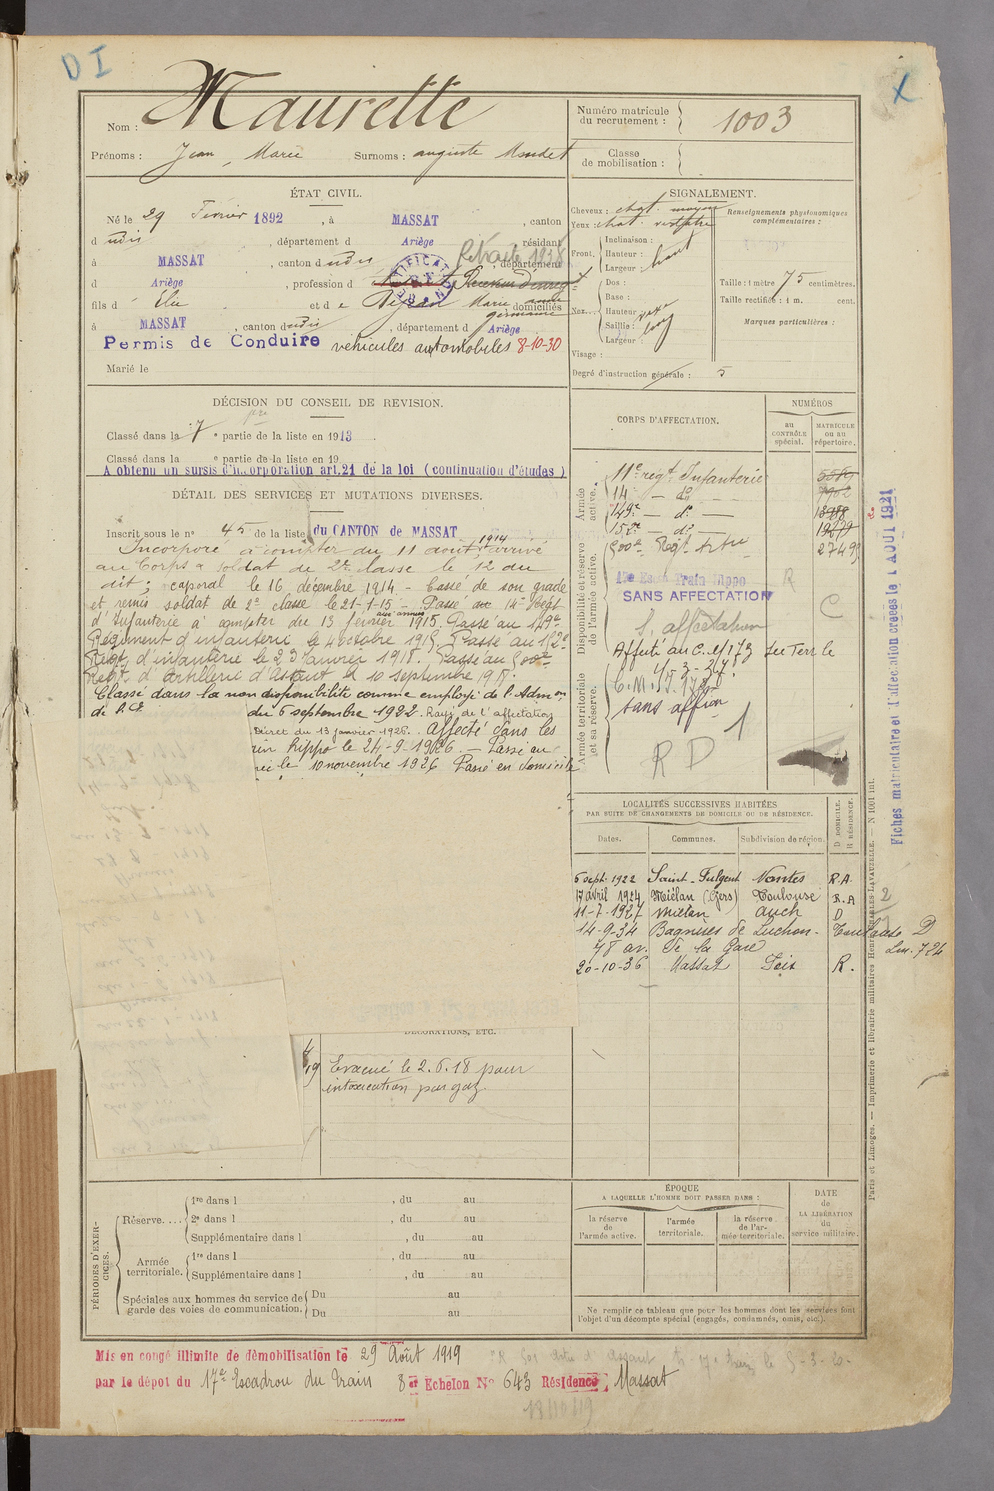 D I
X
Nom : Maurette
Prénoms : Jean, Marie Surnoms : auguste
Numéro matricule du recrutement : 1003
Classe de mobilisation :
ÉTAT CIVIL.
Né le 29 Février 1892, à MASSAT, canton
dudis, département d Ariège, résidant
à MASSAT, canton dudis, département
Retraité 1938
d Ariège, profession de Receveur d'enregt
fils d' Elie et de Marie anne germaine domiciliés
à MASSAT, canton dudis, département d Ariège
Permis de Conduire véhicules automobiles 8-10-30
Marié le
SIGNALEMENT.
Cheveux : chat. moyen
Yeux : chat. verdâtre
Front. Inclinaison :
Hauteur : haut
Largeur :
Nez. Dos :
Base :
Hauteur
Saillie :
Largeur :
Visage :
Degré d'instruction générale : 5
Renseignements physionomiques complémentaires :
Taille : 1 mètre 75 centimètres.
Taille rectifiée : 1 m. cent.
Marques particulières :
DÉCISION DU CONSEIL DE REVISION.
Classé dans la 7e partie de la liste en 1913
Classé dans la e partie de la liste en 19
A obtenu un sursis d'incorporation art. 21 de la loi (continuation d'études)
DÉTAIL DES SERVICES ET MUTATIONS DIVERSES.
Inscrit sous le n° 45 de la liste du CANTON de MASSAT
Incorporé à compter du 11 août 1914, arrivé
au Corps & soldat de 2e classe le 12 du
dit ; caporal le 16 décembre 1914 - Cassé de son grade
et remis soldat de 2e classe le 21-1-15 - Passé au 14e Regt
d'Infanterie à compter du 13 février 1915. Passé au 149e
Régiment d'infanterie le 4 octobre 1915. Passé au 152e
Régt d'infanterie le 23 Janvier 1918. Passé au 500e
Régt d'Artillerie d'Assaut le 10 septembre 1918.
Classé dans la non disponibilité comme employé de l'Admon
de l'E.
du 6 septembre 1922. Rayé de l'affectation
Décret du 13 janvier 1926. Affecté dans les
hippo le 24-9-1926. - Passé au
le 10 novembre 1926 Passé en domicile
CORPS D'AFFECTATION.
NUMÉROS
au CONTRÔLE spécial.
MATRICULE ou au répertoire.
Armée active.
11e régt Infanterie 5589
14 — do — 7902
149e — do — 13988
152e — do — 19279
500e Régt Artie 27499
Disponibilité et réserve de l'armée active.
17e Escon Train Hippo
SANS AFFECTATION
S. affectation
R
C
Affecté au C.M. 173
Armée territoriale et sa réserve.
sans affion
R D 1
LOCALITÉS SUCCESSIVES HABITÉES
PAR SUITE DE CHANGEMENTS DE DOMICILE OU DE RÉSIDENCE.
Dates. Communes. Subdivision de région. D DOMICILE. R RÉSIDENCE.
6 sept. 1922 Saint-Fulgent Nantes R.A.
17 avril 1924 Miélan (Gers) Toulouse R.A
11-7-1927 Miélan Auch D
14-9-34 Bagnères de Luchon - Toulouse D
48 av. de la Gare
20-10-36 Massat Foix R.
DÉCORATIONS, ETC.
Evacué le 2.6.18 pour
intoxication par gaz
PÉRIODES D'EXERCICES.
Réserve.... 1re dans l , du au
2e dans l , du au
Supplémentaire dans l , du au
Armée territoriale. 1re dans l , du au
Supplémentaire dans l , du au
Spéciales aux hommes du service de garde des voies de communication. Du au
Du au
ÉPOQUE
A LAQUELLE L'HOMME DOIT PASSER DANS :
la réserve de l'armée active.
l'armée territoriale.
la réserve de l'armée territoriale.
DATE de LA LIBÉRATION du service militaire.
Ne remplir ce tableau que pour les hommes dont les services font
l'objet d'un décompte spécial (engagés, condamnés, omis, etc.).
Mis en congé illimité de démobilisation le 29 Août 1919
par le dépôt du 17e Escadron du Train 8e Echelon N° 643 Résidence Massat
Fiches matriculaire et d'affectation créées le 1 AOUT 1921
Paris et Limoges. — Imprimerie et librairie militaires Henri CHARLES-LAVAUZELLE. — N 1001 int.